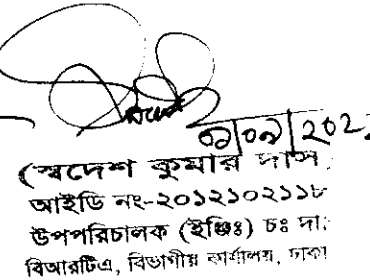 ০১/০৯/202
(স্বদেশ কুমার দাস
আইডি নং-২০১২১০২১১৮
উপপরিচালক (ইঞ্জিঃ) চঃ দাঃ
বিআরটিএ, বিভাগীয় কার্যালয়, ঢাকা